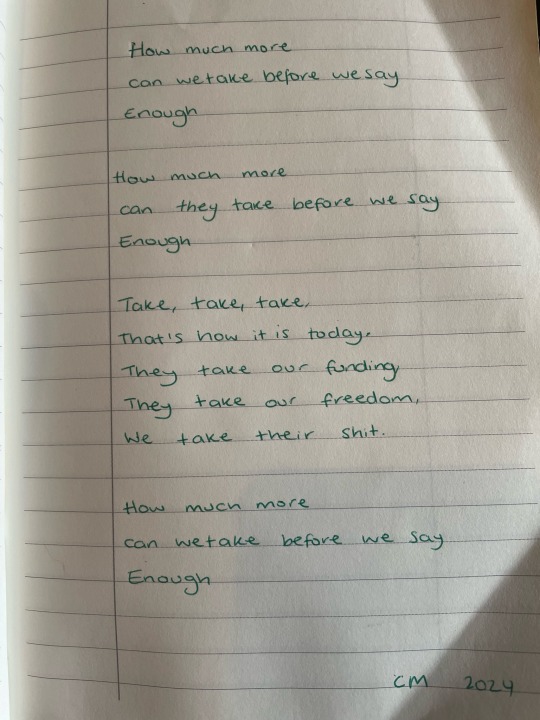 How much more
can we take before we say
Enough
How much more
can they take before we say
Enough
Take, take, take,
That's how it is today.
They take our funding,
They take our freedom,
We take their shit.
How much more
can we take before we say
Enough
CM 2024